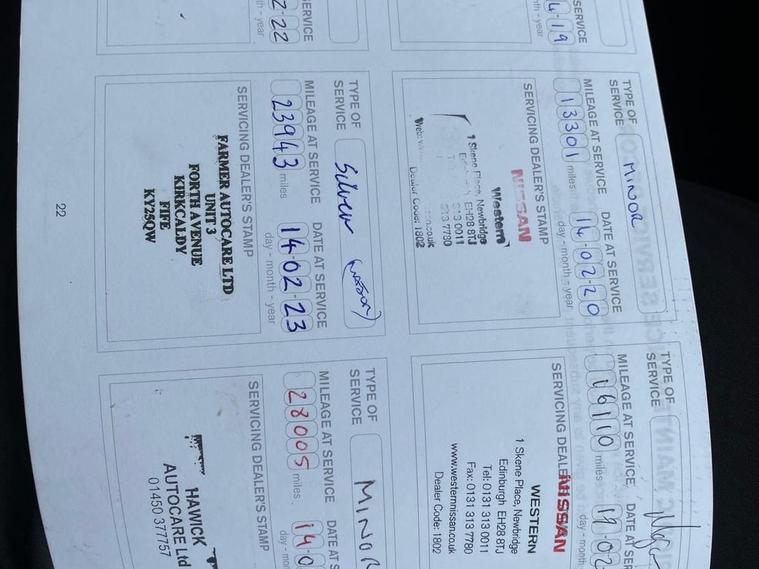 SERVICE
4·19
nth - year
TYPE OF SERVICE
MINOR
MILEAGE AT SERVICE
DATE AT SERVICE
13301 miles
14·02·20
day - month - year
SERVICING DEALER'S STAMP
NISSAN
Western
1 Skene Place, Newbridge
EH28 8TJ
313 0011
313 7780
.co.uk
Dealer Code: 1802
TYPE OF SERVICE
MILEAGE AT SERVICE
DATE AT SER
16110 miles
19·02
day - month
SERVICING DEALER'S STAMP
NISSAN
WESTERN
1 Skene Place, Newbridge
Edinburgh EH28 8TJ
Tel: 0131 313 0011
Fax: 0131 313 7780
www.westernnissan.co.uk
Dealer Code: 1802
SERVICE
2·22
nth - year
TYPE OF SERVICE
Silver
MILEAGE AT SERVICE
DATE AT SERVICE
23943 miles
14·02·23
day - month - year
SERVICING DEALER'S STAMP
FARMER AUTOCARE LTD
UNIT 3
FORTH AVENUE
KIRKCALDY
FIFE
KY25QW
TYPE OF SERVICE
MINOR
MILEAGE AT SERVICE
DATE AT S
28005 miles
14·0
day - mon
SERVICING DEALER'S STAMP
HAWICK
AUTOCARE Ltd
01450 377757
22